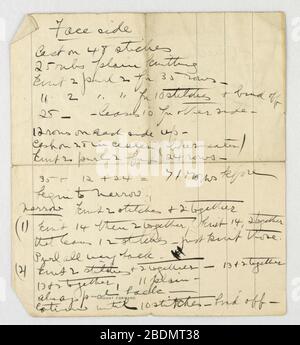 Face side
Cast on 48 stitches
25 ribs plain knitting
Knit 2 purl 2 for 35 rows
" 2 " " for 10 stitches & bind off
25 — leaves 10 for other side
12 rows on each side up
Cast on 25 in center
Knit 2 purl 2 for 24 rows
35 + 12 + 24 = 71 rows before
begin to narrow.
Narrow Knit 2 stitches & 2 together
(1) Knit 14 then 2 together, Knit 14, 2 together
that leaves 12 stitches - just knit those
Purl all way back
(2) Knit 2 stitches & 2 together — 13 & 2 together
13 & 2 together, 11 plain
always purl back
until 10 stitches - bind off -
MOUNT FORWARD
alamy
Image ID: 2BDMT38
www.alamy.com